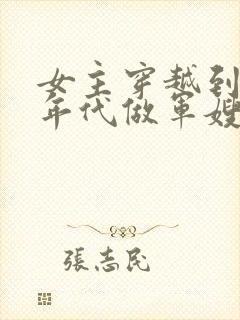 女主穿越到
年代做軍嫂
張志民